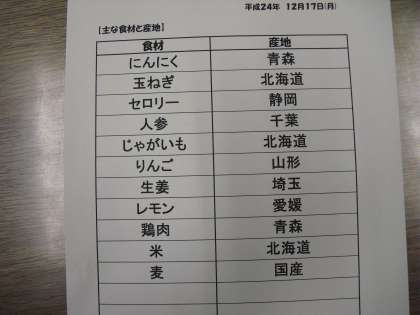 平成24年 12月17日(月)
[主な食材と産地]
食材 産地
にんにく 青森
玉ねぎ 北海道
セロリー 静岡
人参 千葉
じゃがいも 北海道
りんご 山形
生姜 埼玉
レモン 愛媛
鶏肉 青森
米 北海道
麦 国産